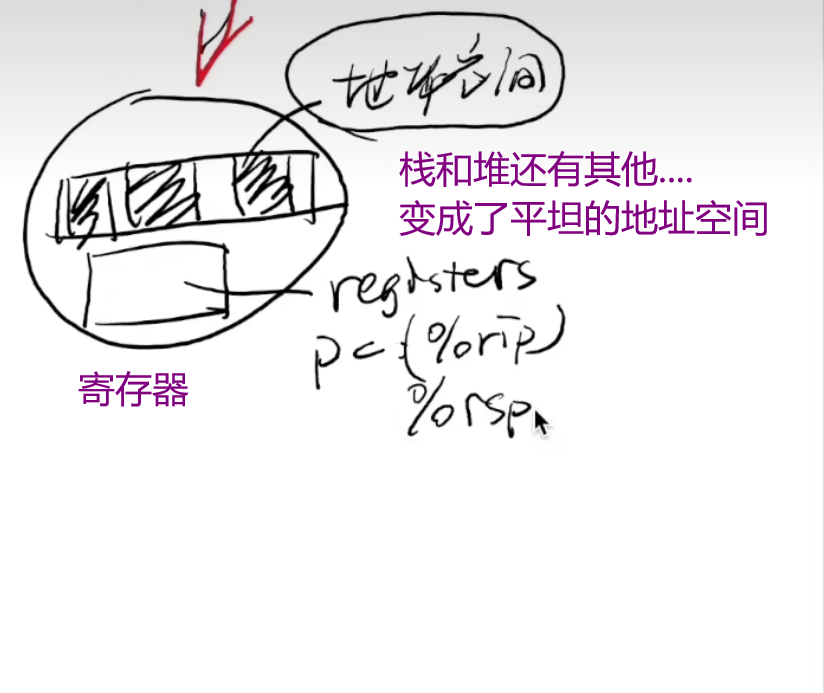 地址空间
栈和堆还有其他....
变成了平坦的地址空间
registers
pc:(%rip)
%rsp
寄存器